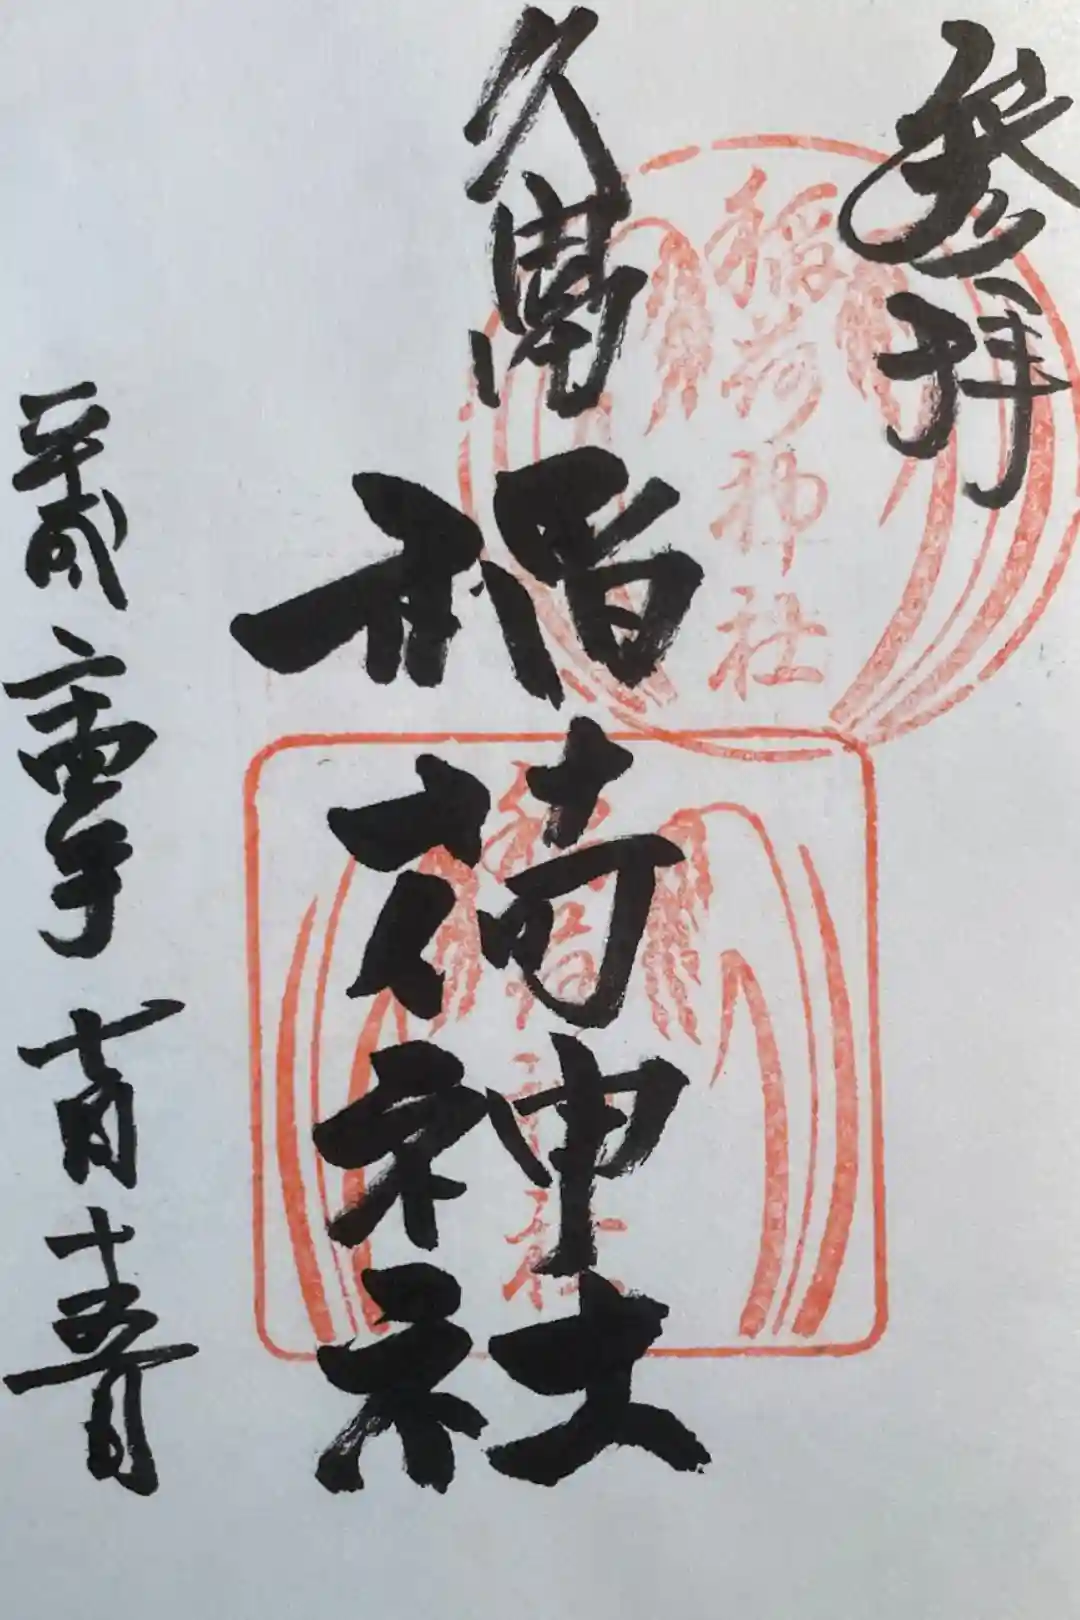 参拝
稲荷神社
久富稲荷神社
稲荷神社
平成二十四年七月十五日